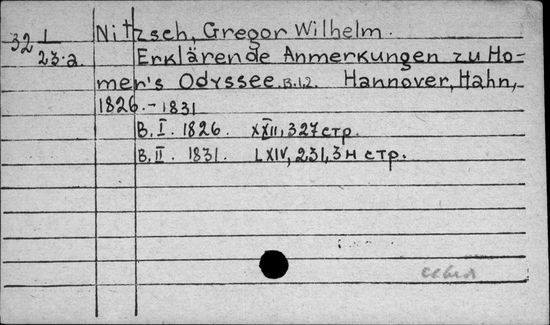 32 1/23.a. Nitzsch, Gregor Wilhelm.
Erklärende Anmerkungen zu Ho-
mer's Odyssee. B.1.2. Hannover, Hahn,
1826.-1831
B. I. 1826. XXIII, 327 стр.
B. II. 1831. LXIV, 231, 3н стр.